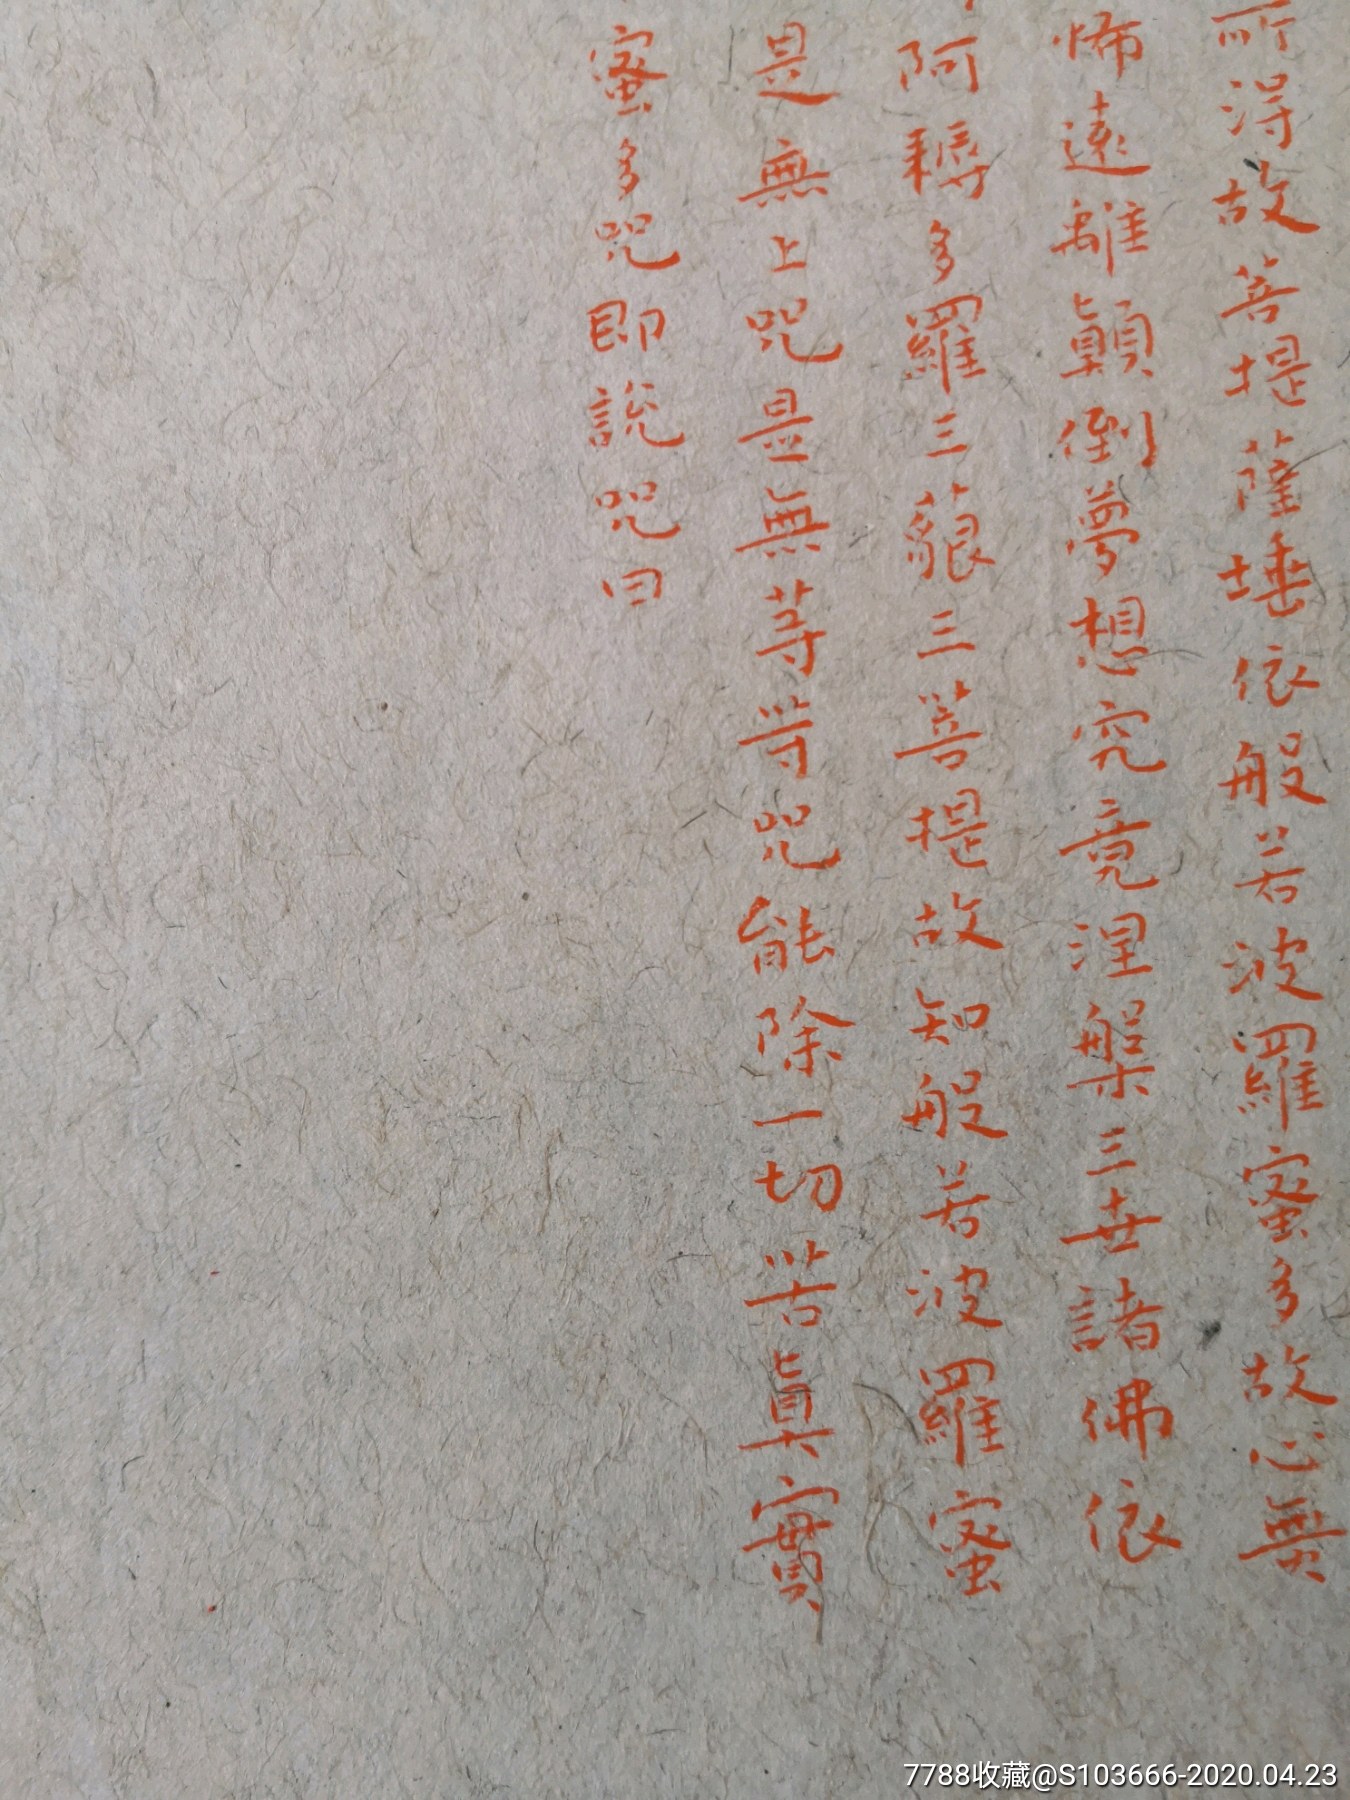 所得故菩提薩埵依般若波羅蜜多故心無
怖遠離顛倒夢想究竟涅槃三世諸佛依
阿耨多羅三藐三菩提故知般若波羅蜜
是無上咒是無等等咒能除一切苦真實
蜜多咒即說咒曰
7788收藏@S103666-2020.04.23